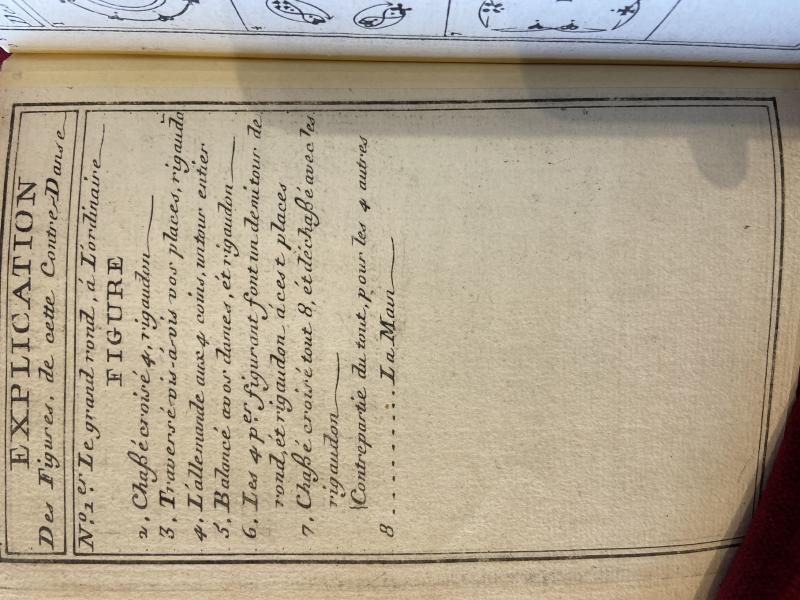 EXPLICATION
Des Figures, de cette Contre-Danse
No. 1.er Le grand rond, á L'ordinaire
FIGURE
2, Chaßé croisé 4, rigaudon
3, Traversé vis-á-vis vos places, rigaudo
4, L'allemande aux 4 coins, un tour entier
5, Balancé a vos dames, et rigaudon
6, Les 4 p.er figurant font un demi tour de
rond, et rigaudon á cest places
7, Chaßé croisé tout 8, et déchaßé avec les
rigaudon
Contrepartie du tout, pour les 4 autres
8 .......... La Main